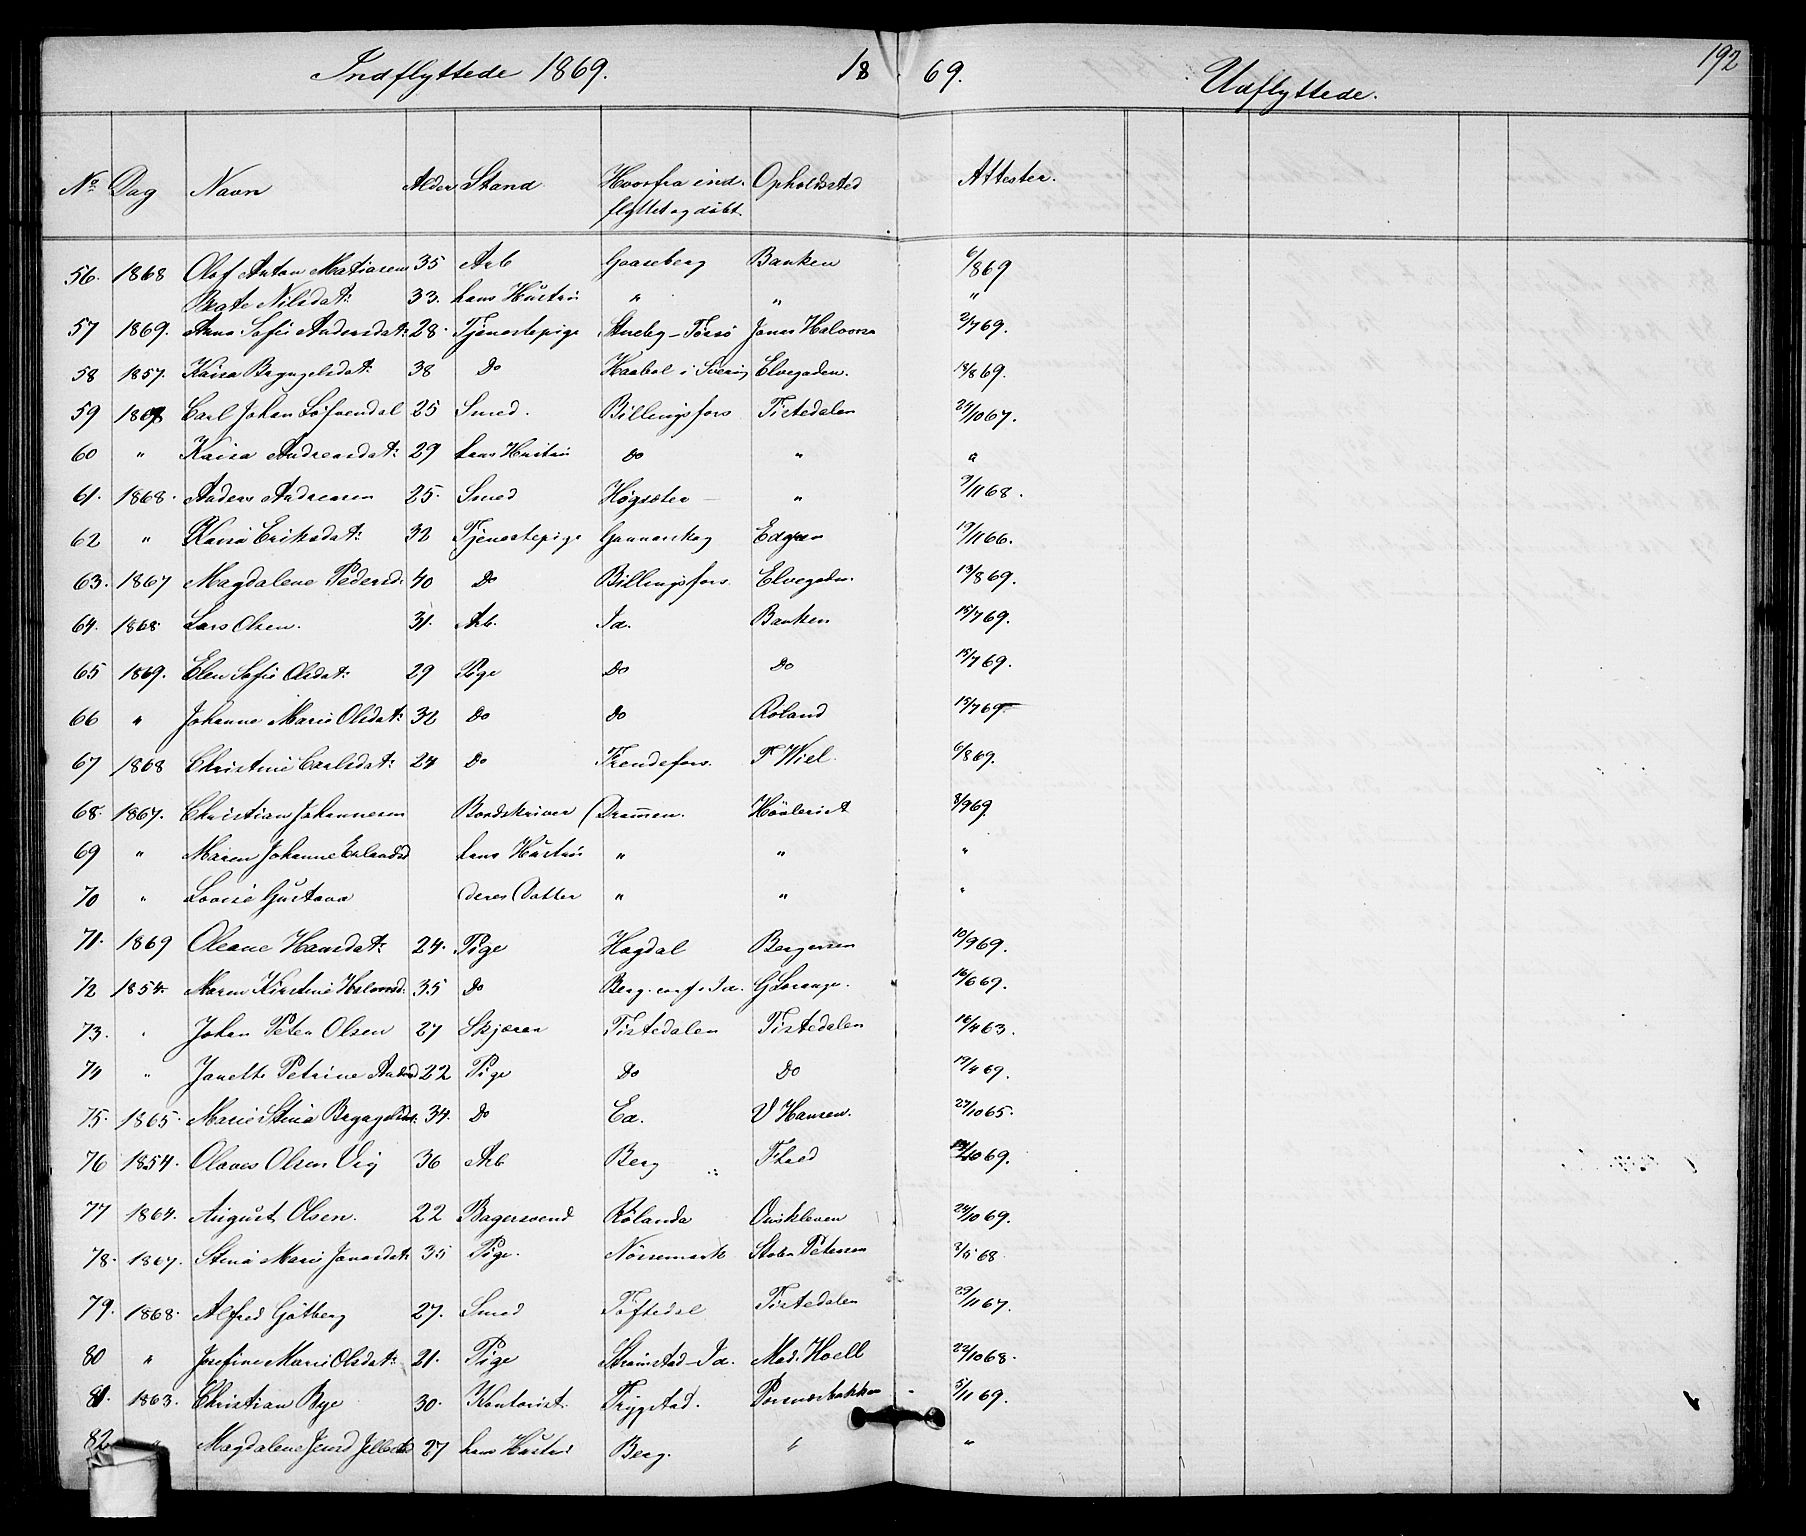 Indflyttede 1869. 18 69. Udflyttede. 192
No Dag Navn Alder Stand Hvorfra ind- Opholdssted Attester.
flyttet og døbt.
56. 1868 Olof Anton Matiasen 35 Arb Gaaseberg Banken 6/869
Beate Nilsdat: 33. hans Hustru " " "
57 1869. Anna Sofie Andersdat: 28. Tjenestepige Steneby - Tørsø Jonas Halvorsen 2/769.
58 1857. Kaisa Bryngelsdat: 38 Do Haabol i Sverig Elvegaden. 18/869.
59 1867 Carl Johan Løfvendal 25 Smed. Billingsfors Tistedalen 24/1067.
60 " Kaisa Andreasdat: 29 hans Hustru Do " "
61. 1868. Anders Andresen 25. Smed Høgsæter " 9/1168.
62 " Kaisa Eriksdat: 32 Tjenestepige Gunnarskog 19/1166.
63. 1867 Magdalene Pedersd. 40 Do Billingsfors. Elvegaden. 13/869.
64. 1868 Lars Olsen. 31. Arb. Id. Banken 15/769.
65 1869. Elen Sofie Olsdat: 29 Pige Do Do 15/769.
66 " Johanne Marie Olsdat: 32 Do Do Røland 15/769.
67 1868 Christine Carlsdat: 24 Do Trendefors. T Wiel. 6/869.
68. 1867. Christian Johannesen Bordskriver Drammen. Hövleriet 8/969.
69 " Maren Johanne Erlandsd hans Hustru " " "
70 " Lovise Gustava deres Datter " " "
71. 1869 Oleane Hansdat: 24. Pige Hogdal Bergersen 10/969.
72 1854. Maren Kirstine Halvorsd. 35 Do Berg. conf. i Id. G Lorange. 16/669.
73. " Johan Peter Olsen 27 Skjærer Tistedalen Tistedalen 16/463.
74 " Janette Petrine Andersd 22 Pige Do Do 19/469.
75. 1865. Marie Stina Bryngelsdat: 34. Do Ed. V Hansen. 27/1065.
76 1854. Olaves Olsen Vig 36 Arb Berg " 12/1069.
77 1864. August Olsen. 22 Bagersvend Rølanda Overkleven 23/1069.
78. 1867. Stina Marie Jonasdat: 35 Pige. Nössemark Petersen 2/568
79. 1868. Alfred Götberg 27. Smed Töftedal Tistedalen 29/1167.
80 " Josefine Marie Olsdat: 21. Pige Strømstad - Id. Mad. Hoell 22/1068.
81. 1863. Christian Bye 30. Kontorist. Trygstad. Porsnesbakken 5/1169.
82 " Magdalene 27 hans Hustru Berg. " "